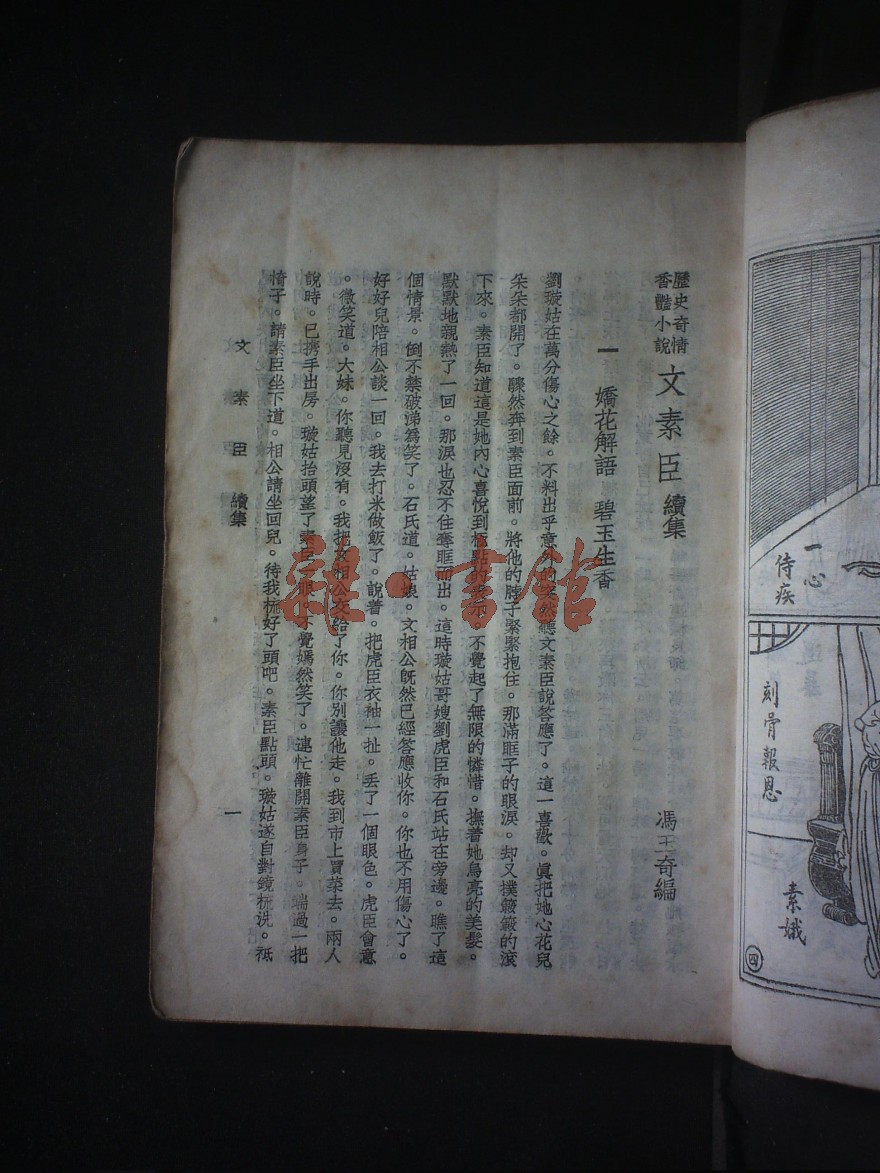 歷史奇情
香豔小說
文素臣 續集
馮玉奇編
一 嬌花解語 碧玉生香
劉璇姑在萬分傷心之餘。不料出乎意外的突然聽文素臣說答應了。這一喜歡。眞把她心花兒
朵朵都開了。驟然奔到素臣面前。將他的脖子緊緊抱住。那滿眶子的眼淚。却又撲簌簌的滾
下來。素臣知道這是她內心喜悅到極點的表示。不覺起了無限的憐惜。撫着她烏亮的美髮。
默默地親熱了一回。那淚也忍不住奪眶而出。這時璇姑哥嫂劉虎臣和石氏站在旁邊。瞧了這
個情景。倒不禁破涕爲笑了。石氏道。姑娘。文相公旣然已經答應收你。你也不用傷心了。
好好兒陪相公談一回。我去打米做飯了。說着。把虎臣衣袖一扯。丢了一個眼色。虎臣會意
。微笑道。大妹。你聽見沒有。我把文相公交給了你。你別讓他走。我到市上買菜去。兩人
說時。已携手出房。璇姑抬頭望了素臣一眼。不覺嫣然笑了。連忙離開素臣身子。端過一把
椅子。請素臣坐下道。相公請坐回兒。待我梳好了頭吧。素臣點頭。璇姑遂自對鏡梳洗。祗
文素臣 續集
一
雜·書館
一心
侍疾
刻骨報恩
素娥
四